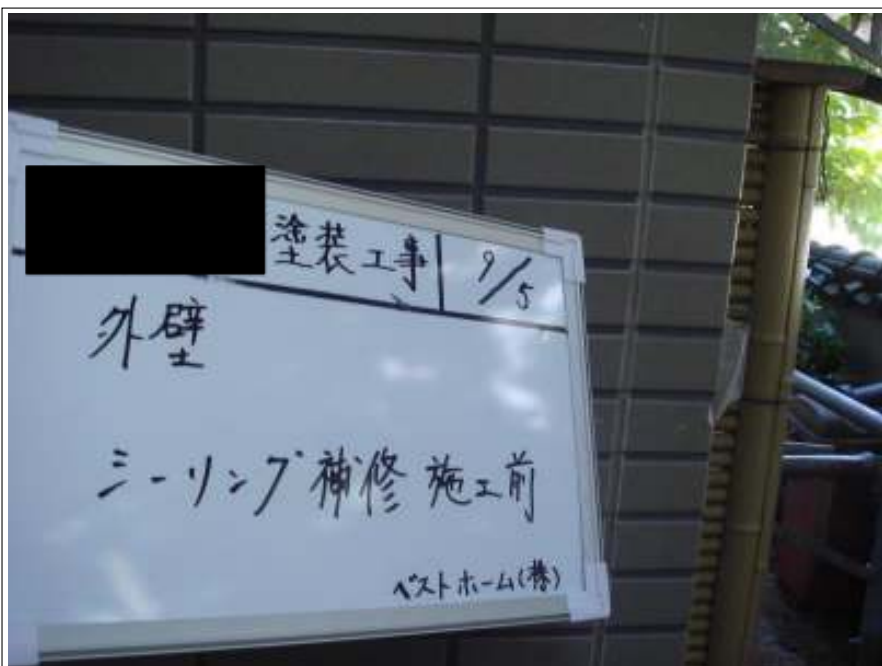 塗装工事 9/5
外壁
シーリング補修 施工前
ベストホーム(株)